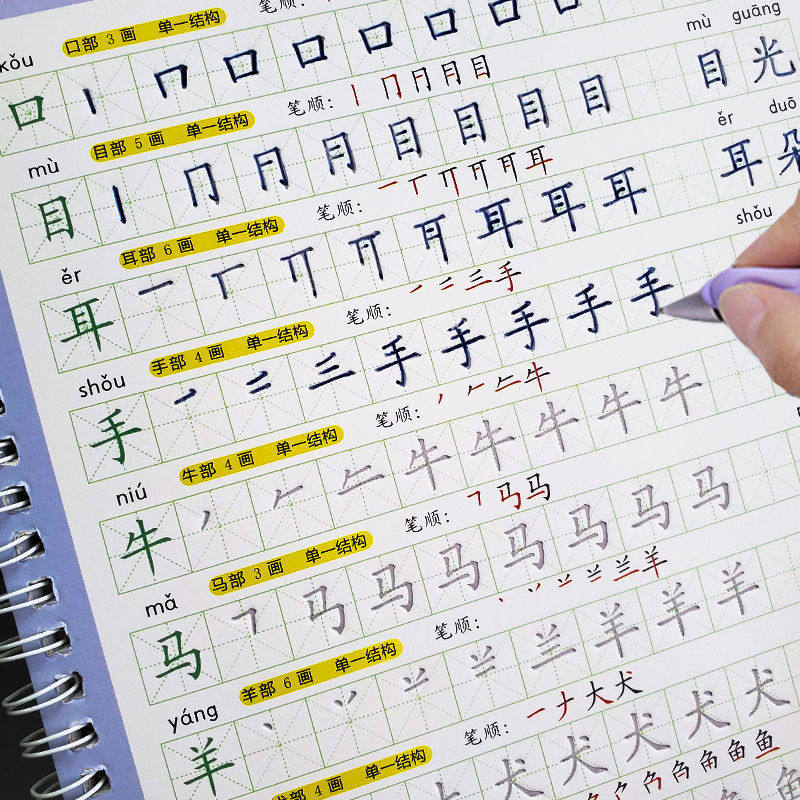 kǒu 口部 3 画 单一结构 笔顺:
口 丨 冂 口 口 口 口 口 口
mù 目部 5 画 单一结构 笔顺: 丨 冂 冃 月 目 mù guāng
目 丨 冂 冃 月 目 目 目 目 目 光
ěr 耳部 6 画 单一结构 笔顺: 一 丅 丌 耳 ěr duō
耳 一 丅 丌 耳 耳 耳 耳 朵
shǒu 手部 4 画 单一结构 笔顺: 一 二 三 手 shǒu
手 一 二 三 手 手 手 手 手
niú 牛部 4 画 单一结构 笔顺: 丿 𠂉 牛
牛 丿 𠂉 牛 牛 牛 牛 牛
mǎ 马部 3 画 单一结构 笔顺: ㇕ 马 马
马 ㇕ 马 马 马 马 马 马 马
yáng 羊部 6 画 单一结构 笔顺: 丶 丷 䒑 兰 羊
羊 丶 丷 䒑 兰 羊 羊 羊
犬部 4 画 单一结构 笔顺: 一 ナ 大 犬
犬 犬 犬 犬 犬
角 鱼 鱼